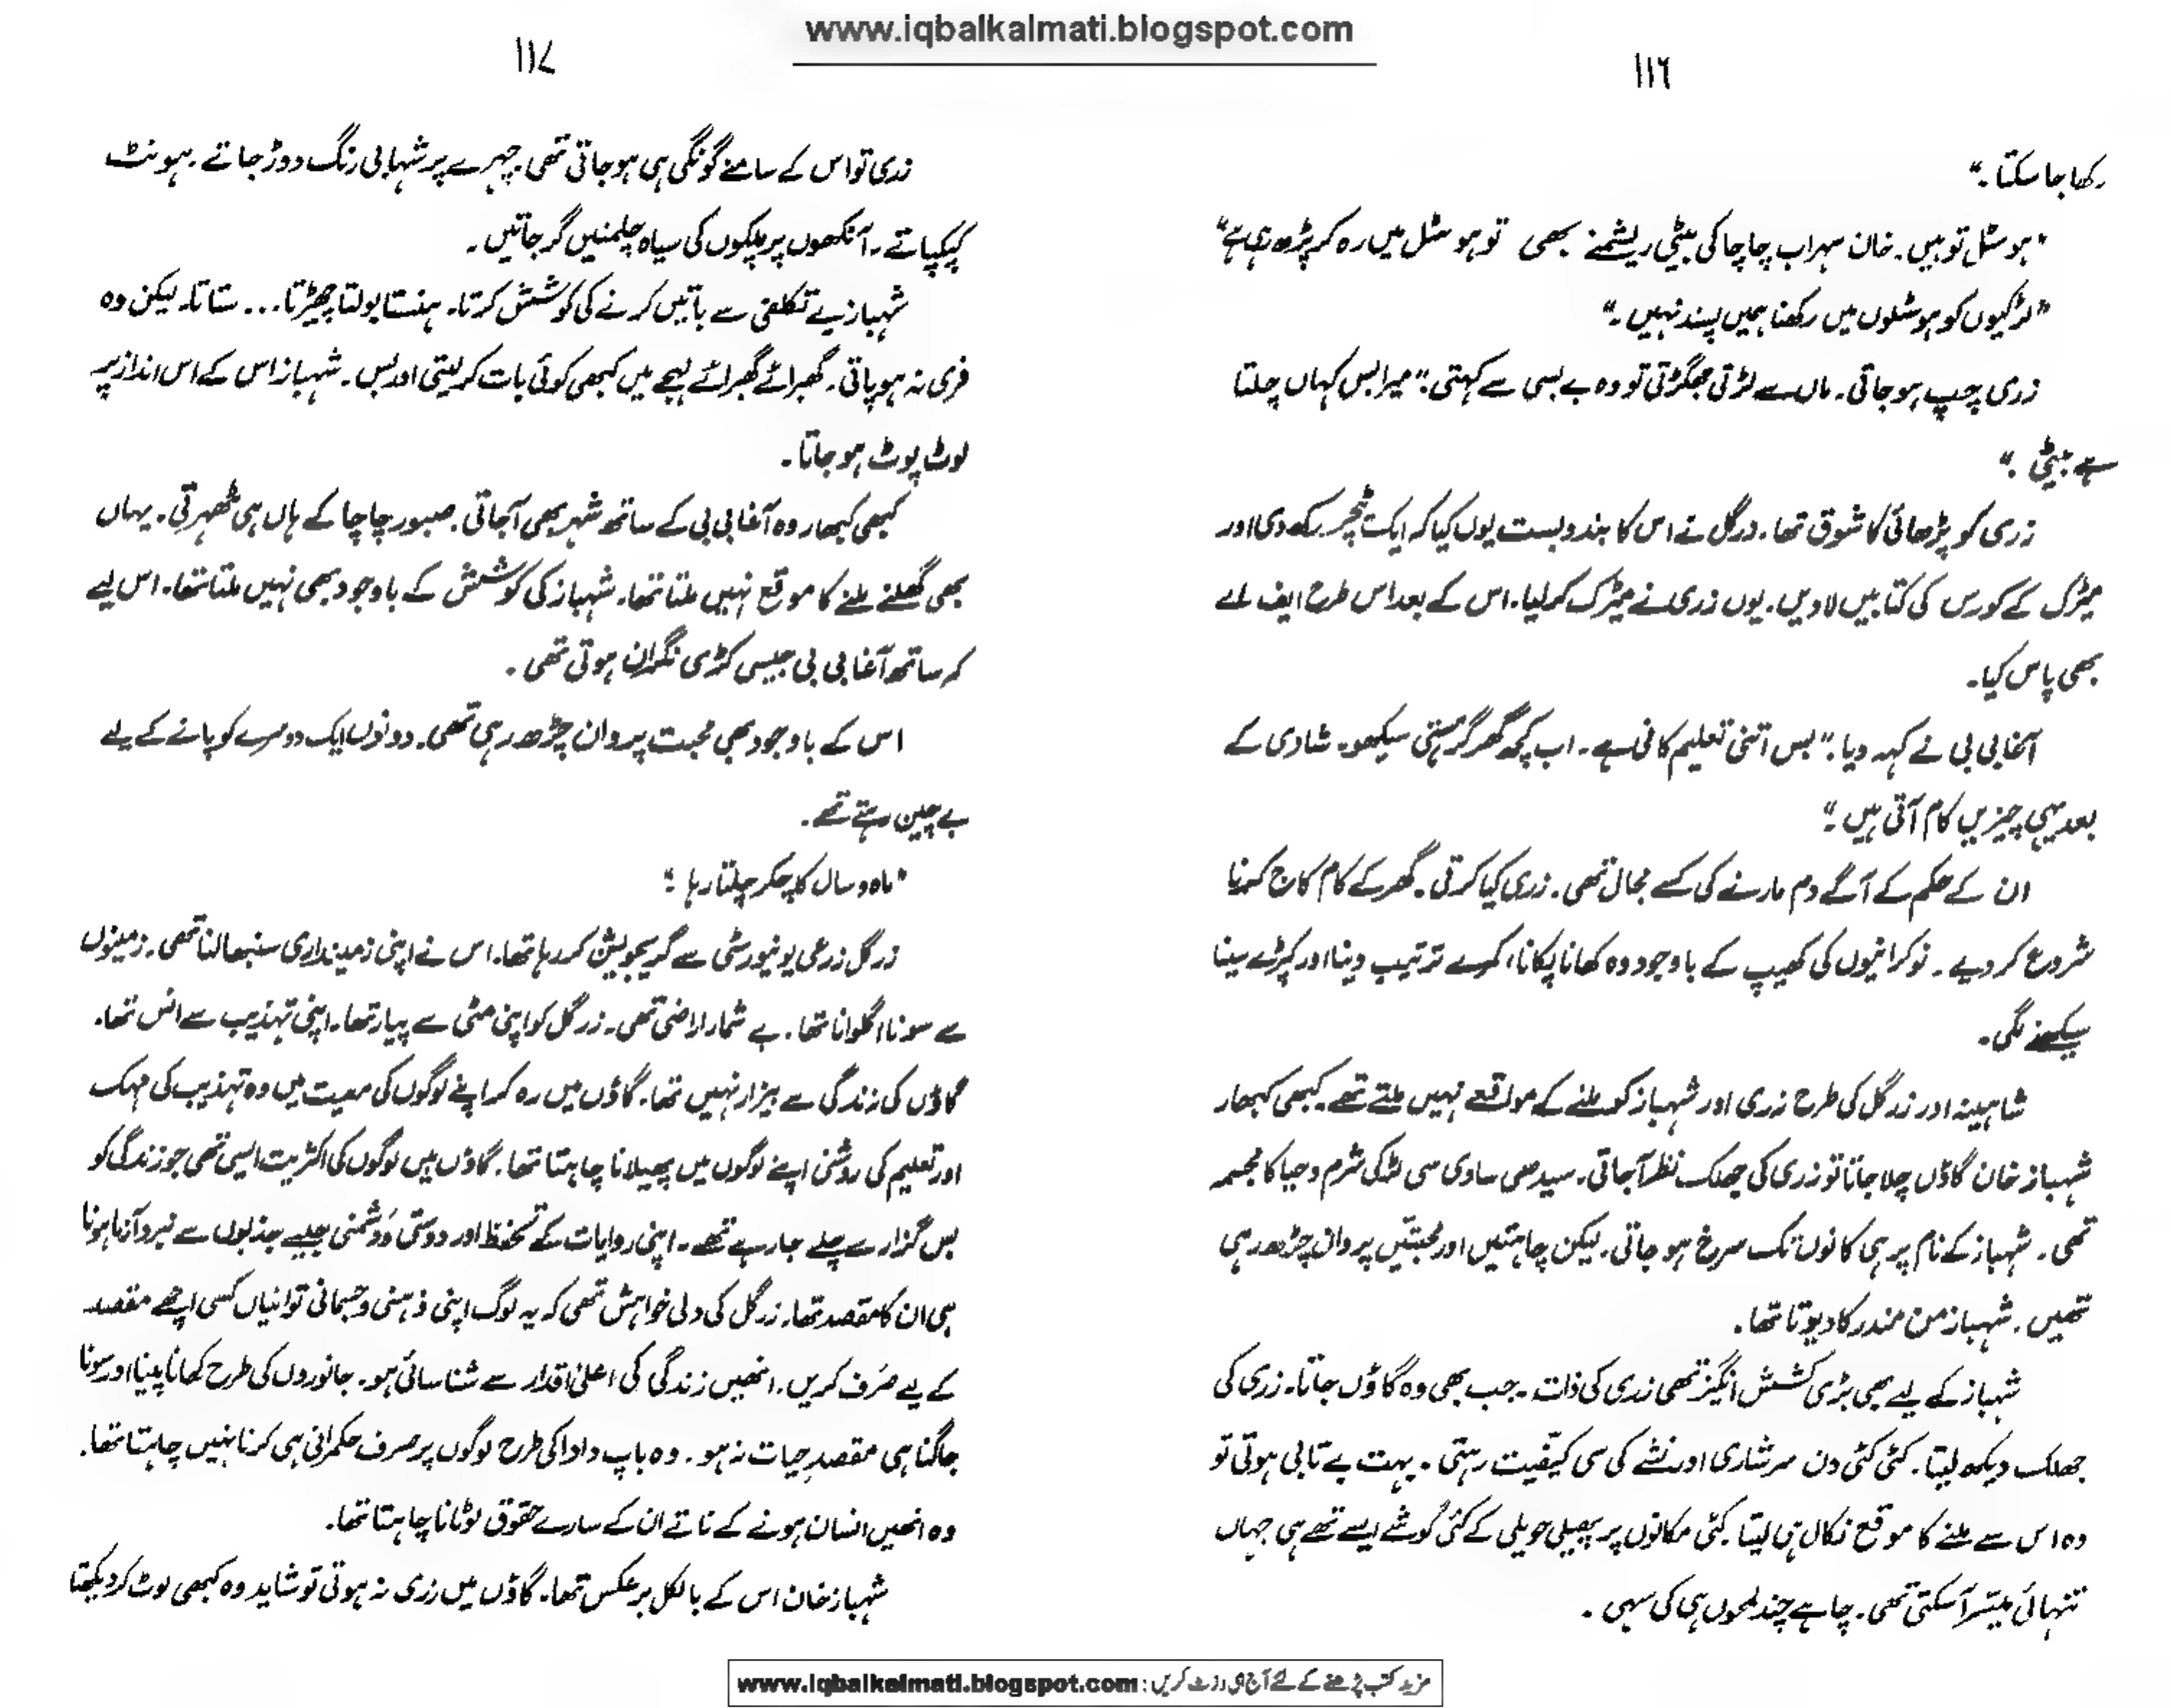 www.iqbalkalmati.blogspot.com
۱۱۶
رکھا جا سکتا۔“
”ہوسٹل تو ہیں۔ خان سہراب چاچا کی بیٹی ریشمنے بھی تو ہوسٹل میں رہ کر پڑھ رہی ہے“
”لڑکیوں کو ہوسٹلوں میں رکھنا ہمیں پسند نہیں۔“
زری چپ ہو جاتی۔ ماں سے لڑتی جھگڑتی تو وہ بے بسی سے کہتی۔ ”میرا بس کہاں چلتا
ہے بیٹی۔“
زری کو پڑھائی کا شوق تھا۔ زرگل نے اس کا بندوبست یوں کیا کہ ایک ٹیچر رکھ دی اور
میٹرک کے کورس کی کتابیں لا دیں۔ یوں زری نے میٹرک کر لیا۔ اس کے بعد اس طرح ایف اے
بھی پاس کیا۔
آغا بی بی نے کہہ دیا۔ ”بس اتنی تعلیم کافی ہے۔ اب کچھ گھر گرہستی سیکھو۔ شادی کے
بعد یہی چیزیں کام آتی ہیں۔“
ان کے حکم کے آگے دم مارنے کی کسے مجال تھی۔ زری کیا کرتی۔ گھر کے کام کاج کرنا
شروع کر دیے۔ نوکرانیوں کی کھیپ کے باوجود وہ کھانا پکانا، کمرے ترتیب دینا اور کپڑے سینا
سیکھنے لگی۔
شاہینہ اور زرگل کی طرح زری اور شہباز کو ملنے کے مواقعے نہیں ملتے تھے۔ کبھی کبھار
شہباز خان گاؤں چلا جاتا تو زری کی جھلک نظر آجاتی۔ سیدھی سادی سی لڑکی شرم و حیا کا مجسمہ
تھی۔ شہباز کے نام پر ہی کانوں تک سرخ ہو جاتی۔ لیکن چاہتیں اور محبتیں پروان چڑھ رہی
تھیں۔ شہباز من مندر کا دیوتا تھا۔
شہباز کے لیے بھی بڑی کشش انگیز تھی زری کی ذات۔ جب بھی وہ گاؤں جاتا۔ زری کی
جھلک دیکھ لیتا۔ کئی کئی دن سرشاری اور نشے کی سی کیفیت رہتی۔ بہت بے تابی ہوتی تو
وہ اس سے ملنے کا موقع نکال ہی لیتا۔ کئی مکانوں پر پھیلی حویلی کے کئی گوشے ایسے تھے ہی جہاں
تنہائی میسّر آسکتی تھی۔ چاہے چند لمحوں ہی کی سہی۔
۱۱۷
زری تو اس کے سامنے گونگی ہی ہو جاتی تھی۔ چہرے پر شہابی رنگ دوڑ جاتے۔ ہونٹ
کپکپاتے۔ آنکھوں پر پلکوں کی سیاہ چلمنیں گر جاتیں۔
شہباز بے تکلفی سے باتیں کرنے کی کوشش کرتا۔ ہنستا بولتا چھیڑتا... ستاتا۔ لیکن وہ
فری نہ ہو پاتی۔ گھبرائے گھبرائے لہجے میں کبھی کوئی بات کر لیتی اور بس۔ شہباز اس کے اس انداز پر
لوٹ پوٹ ہو جاتا۔
کبھی کبھار وہ آغا بی بی کے ساتھ شہر بھی آجاتی۔ صبور چاچا کے ہاں ہی ٹھہرتی۔ یہاں
بھی گھلنے ملنے کا موقع نہیں ملتا تھا۔ شہباز کی کوشش کے باوجود بھی نہیں ملتا تھا۔ اس لیے
کہ ساتھ آغا بی بی جیسی کڑی نگران ہوتی تھی۔
اس کے باوجود بھی محبت پروان چڑھ رہی تھی۔ دونوں ایک دوسرے کو پانے کے لیے
بے چین رہتے تھے۔
”ماہ و سال کا چکر چلتا رہا۔“
زرگل زرعی یونیورسٹی سے گریجویشن کر رہا تھا۔ اس نے اپنی زمینداری سنبھالنا تھی۔ زمینوں
سے سونا اگلوانا تھا۔ بے شمار اراضی تھی۔ زرگل کو اپنی مٹی سے پیار تھا۔ اپنی تہذیب سے انس تھا۔
گاؤں کی زندگی سے بیزار نہیں تھا۔ گاؤں میں رہ کر اپنے لوگوں کی معیت میں وہ تہذیب کی مہک
اور تعلیم کی روشنی اپنے لوگوں میں پھیلانا چاہتا تھا۔ گاؤں میں لوگوں کی اکثریت ایسی تھی جو زندگی کو
بس گزارے چلے جا رہے تھے۔ اپنی روایات کے تحفظ اور دوستی و دشمنی جیسے جذبوں سے نبرد آزما ہونا
ہی ان کا مقصد تھا۔ زرگل کی دلی خواہش تھی کہ یہ لوگ اپنی ذہنی و جسمانی توانائیاں کسی اچھے مقصد
کے لیے صَرف کریں۔ انھیں زندگی کی اعلیٰ اقدار سے شناسائی ہو۔ جانوروں کی طرح کھانا پینا اور سونا
جاگنا ہی مقصدِ حیات نہ ہو۔ وہ باپ دادا کی طرح لوگوں پر صرف حکمرانی ہی کرنا نہیں چاہتا تھا۔
وہ انھیں انسان ہونے کے ناتے ان کے سارے حقوق لوٹانا چاہتا تھا۔
شہباز خان اس کے بالکل برعکس تھا۔ گاؤں میں زری نہ ہوتی تو شاید وہ کبھی لوٹ کر دیکھتا
مزید کتب پڑھنے کے لئے آج ہی وزٹ کریں: www.iqbalkalmati.blogspot.com